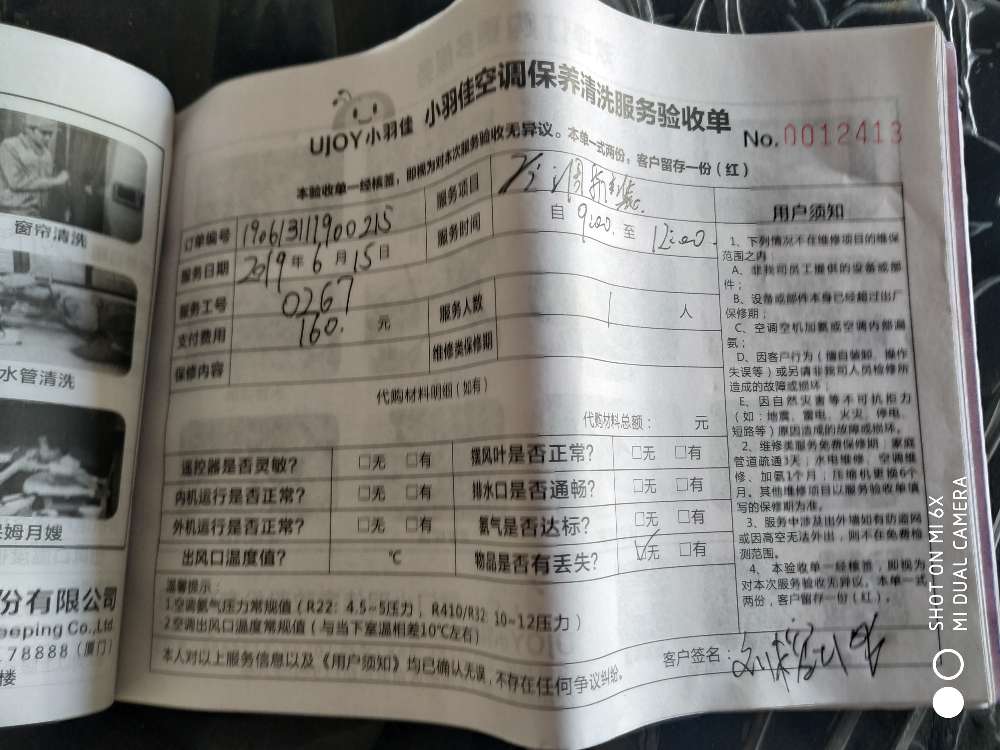 窗帘清洗
水管清洗
保姆月嫂
份有限公司
eeping Co.,Ltd
178888（厦门）
楼
UJOY小羽佳 小羽佳空调保养清洗服务验收单
No.0012413
本验收单一经核签，即视为对本次服务验收无异议。本单一式两份，客户留存一份（红）
订单编号 190613111900215
服务项目
服务日期 2019年6月15日
服务时间 自 9:00 至 12:00
服务工号 0267
服务人数 1 人
支付费用 160. 元
维修类保修期
保修内容
代购材料明细（如有）
代购材料总额： 元
遥控器是否灵敏？ □无 □有
摆风叶是否正常？ □无 □有
内机运行是否正常？ □无 □有
排水口是否通畅？ □无 □有
外机运行是否正常？ □无 □有
氨气是否达标？ □无 □有
出风口温度值？ ℃
物品是否有丢失？ ☑无 □有
温馨提示：
1.空调氨气压力常规值（R22：4.5~5压力，R410/R32: 10~12压力）
2.空调出风口温度常规值（与当下室温相差10℃左右）
本人对以上服务信息以及《用户须知》均已确认无误，不存在任何争议纠纷。
客户签名：
用户须知
1、下列情况不在维修项目的维保
范围之内：
A、非我司员工提供的设备或部
件；
B、设备或部件本身已经超过出厂
保修期；
C、空调空机加氨或空调内部漏
氨；
D、因客户行为（擅自装卸、操作
失误等）或另请非我司人员检修所
造成的故障或损坏；
E、因自然灾害等不可抗拒力
（如：地震、雷电、火灾、停电、
短路等）原因造成的故障或损坏。
2、维修类服务免费保修期：家庭
管道疏通3天；水电维修、空调维
修、加氨1个月；压缩机更换6个
月。其他维修项目以服务验收单填
写的保修期为准。
3、服务中涉及出外墙如有防盗网
或因高空无法外出，则不在免费检
测范围。
4、本验收单一经核签，即视为
对本次服务验收无异议。本单一式
两份，客户留存一份（红）。
SHOT ON MI 6X
MI DUAL CAMERA